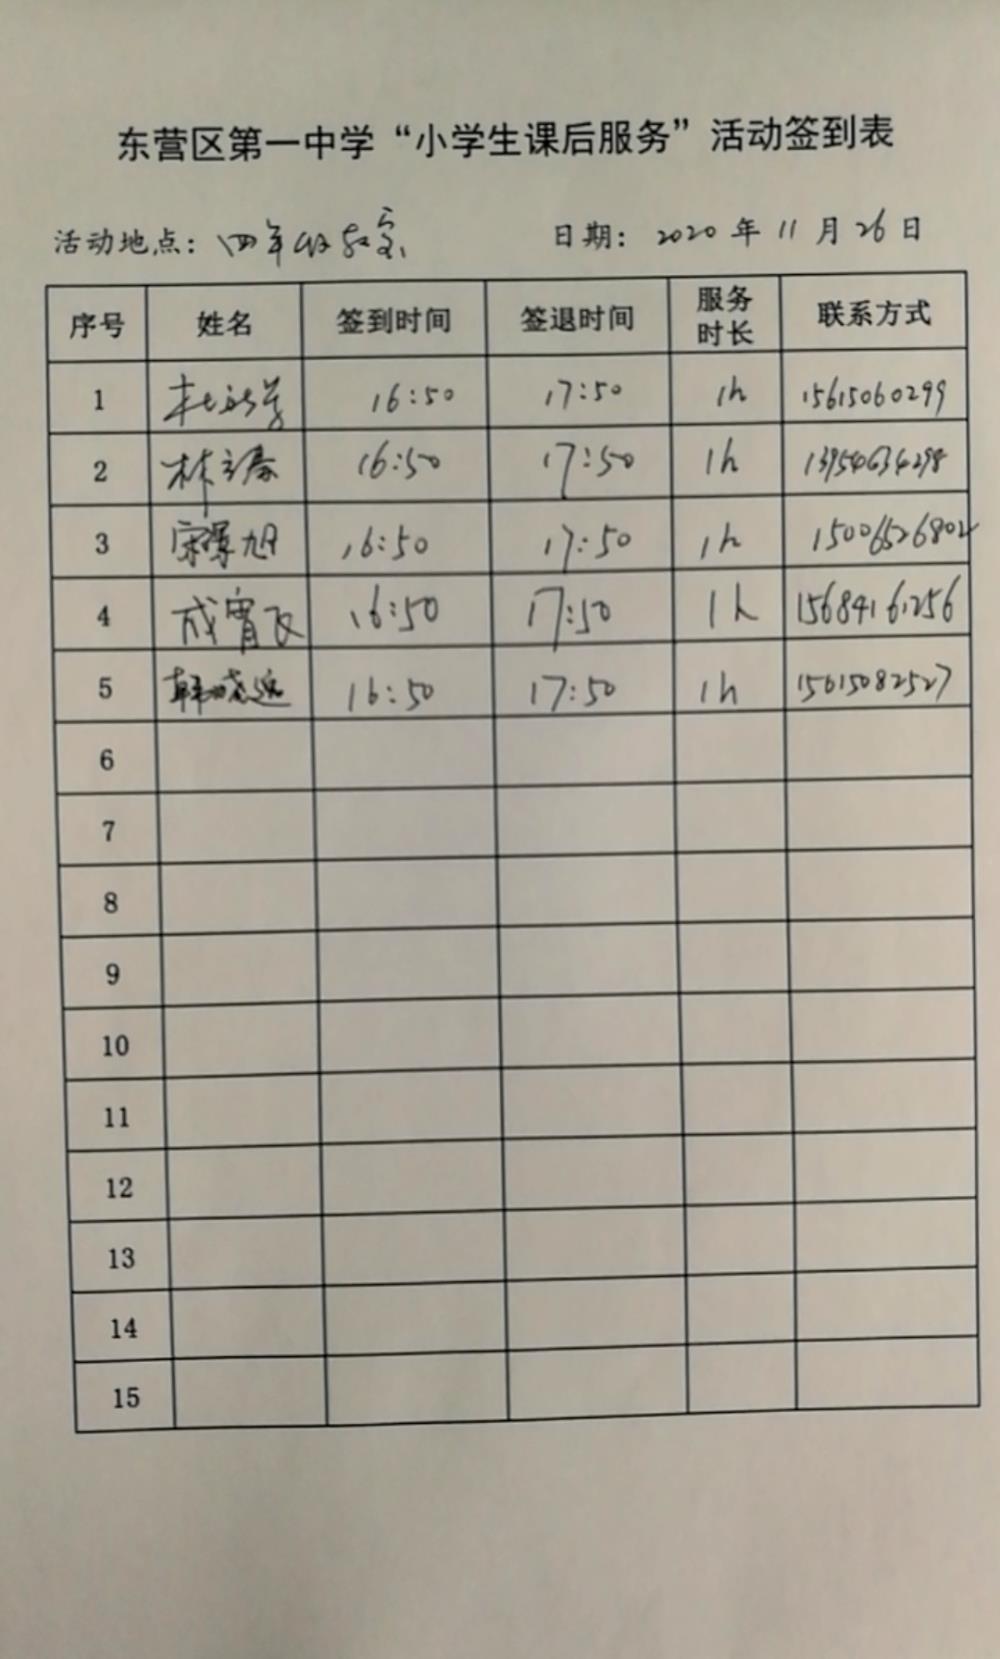 东营区第一中学“小学生课后服务”活动签到表
活动地点：四年级教室 日期：2020年11月26日
序号 姓名 签到时间 签退时间 服务时长 联系方式
1 16:50 17:50 1h 15615060299
2 林 16:50 17:50 1h 13954634298
3 宋 旭 16:50 17:50 1h 15006526802
4 成宵飞 16:50 17:50 1h 15684161256
5 韩晓 16:50 17:50 1h 15615082527
6
7
8
9
10
11
12
13
14
15